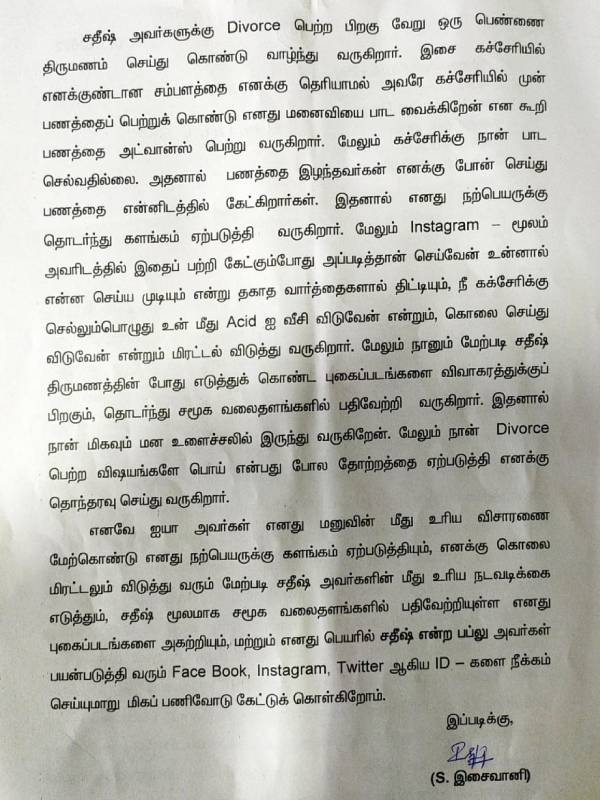 சதீஷ் அவர்களுக்கு Divorce பெற்ற பிறகு வேறு ஒரு பெண்ணை
திருமணம் செய்து கொண்டு வாழ்ந்து வருகிறார். இசை கச்சேரியில்
எனக்குண்டான சம்பளத்தை எனக்கு தெரியாமல் அவரே கச்சேரியில் முன்
பணத்தைப் பெற்றுக் கொண்டு எனது மனைவியை பாட வைக்கிறேன் என கூறி
பணத்தை அட்வான்ஸ் பெற்று வருகிறார். மேலும் கச்சேரிக்கு நான் பாட
செல்வதில்லை. அதனால் பணத்தை இழந்தவர்கள் எனக்கு போன் செய்து
பணத்தை என்னிடத்தில் கேட்கிறார்கள். இதனால் எனது நற்பெயருக்கு
தொடர்ந்து களங்கம் ஏற்படுத்தி வருகிறார். மேலும் Instagram – மூலம்
அவரிடத்தில் இதைப் பற்றி கேட்கும்போது அப்படித்தான் செய்வேன் உன்னால்
என்ன செய்ய முடியும் என்று தகாத வார்த்தைகளால் திட்டியும், நீ கக்சேரிக்கு
செல்லும்பொழுது உன் மீது Acid ஐ வீசி விடுவேன் என்றும், கொலை செய்து
விடுவேன் என்றும் மிரட்டல் விடுத்து வருகிறார். மேலும் நானும் மேற்படி சதீஷ்
திருமணத்தின் போது எடுத்துக் கொண்ட புகைப்படங்களை விவாகரத்துக்குப்
பிறகும், தொடர்ந்து சமூக வலைதளங்களில் பதிவேற்றி வருகிறார். இதனால்
நான் மிகவும் மன உளைச்சலில் இருந்து வருகிறேன். மேலும் நான் Divorce
பெற்ற விஷயங்களே பொய் என்பது போல தோற்றத்தை ஏற்படுத்தி எனக்கு
தொந்தரவு செய்து வருகிறார்.
எனவே ஐயா அவர்கள் எனது மனுவின் மீது உரிய விசாரணை
மேற்கொண்டு எனது நற்பெயருக்கு களங்கம் ஏற்படுத்தியும், எனக்கு கொலை
மிரட்டலும் விடுத்து வரும் மேற்படி சதீஷ் அவர்களின் மீது உரிய நடவடிக்கை
எடுத்தும், சதீஷ் மூலமாக சமூக வலைதளங்களில் பதிவேற்றியுள்ள எனது
புகைப்படங்களை அகற்றியும், மற்றும் எனது பெயரில் சதீஷ் என்ற பப்லு அவர்கள்
பயன்படுத்தி வரும் Face Book, Instagram, Twitter ஆகிய ID – களை நீக்கம்
செய்யுமாறு மிகப் பணிவோடு கேட்டுக் கொள்கிறோம்.
இப்படிக்கு,
(S. இசைவாணி)